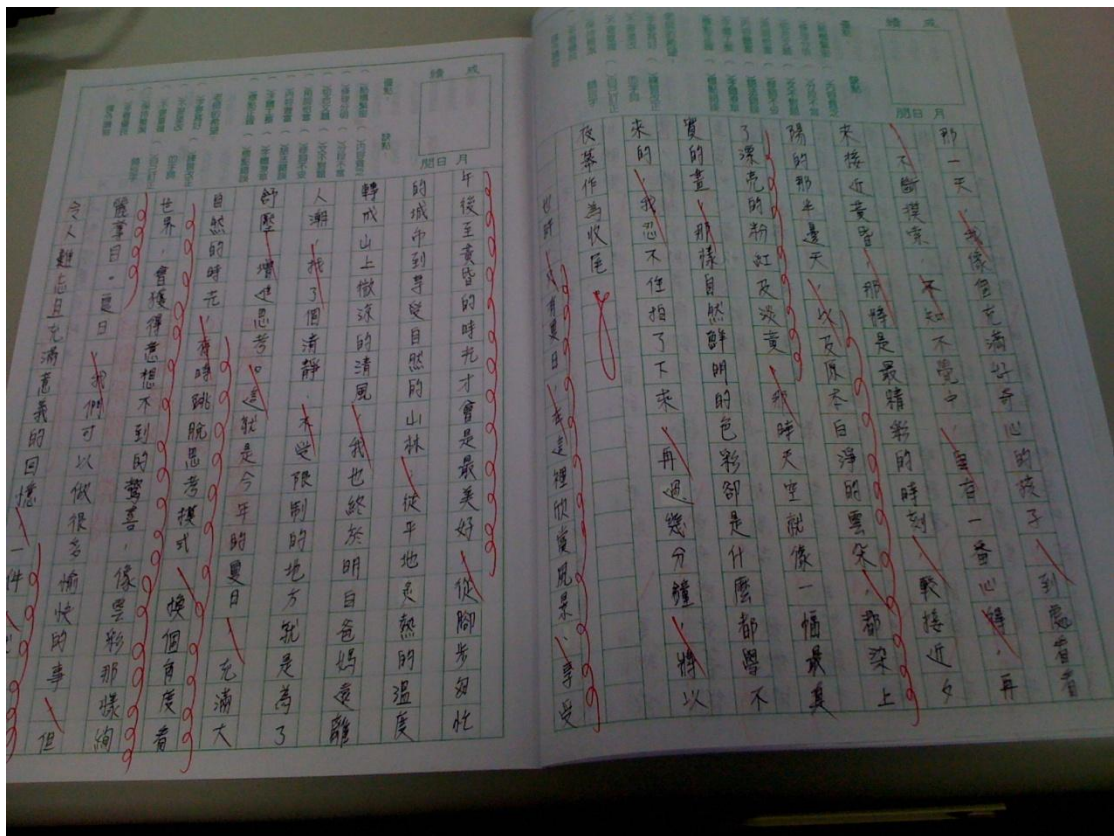 成績
月 日 閱
那一天,我像個充滿好奇心的孩子,到處看看
,不斷摸索,不知不覺中,皇有一番心得,再
來接近黃昏,那將是最精彩的時刻,較接近夕
陽的那半邊天,以及原本白淨的雲朵,都染上
了漂亮的粉紅及淡黃,那時天空就像一幅最真
實的畫,那樣自然鮮明的色彩卻是什麼都學不
來的,我忍不住拍了下來,再過幾分鐘,將以
夜幕作為收尾
有夏日,去這裡欣賞風景,享受
成績
月 日 閱
午後至黃昏的時光才會是最美好,從腳步匆忙
的城市到享受自然的山林,從平地炙熱的溫度
轉成山上微涼的清風,我也終於明白爸媽遠離
人潮,找了個清靜,不受限制的地方就是為了
舒壓,增進思考。這就是今年的夏日,充滿大
自然的時光,有時跳脫思考模式,換個角度看
世界,會獲得意想不到的驚喜,像雲彩那樣絢
麗奪目。夏日,我們可以做很多愉快的事,但
令人難忘且充滿意義的回憶,一件